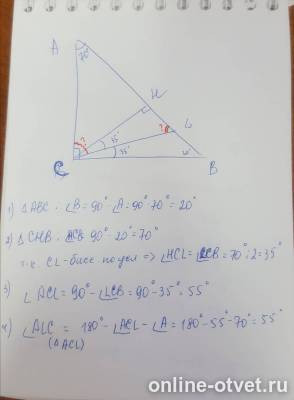 A
70°
H
L
?
?
35°
35°
C
B
1) △ABC: ∠B = 90° ∠A = 90° 70° = 20°
2) △CHB: 90° - 20° = 70°
т.к. CL - бисс. => ∠HCL = ∠LCB = 70° : 2 = 35°
3) ∠ACL = 90° - ∠LCB = 90 - 35° = 55°
4) ∠ALC = 180° - ∠ACL - ∠A = 180° - 55 - 70° = 55°
(△ACL)
online-otvet.ru